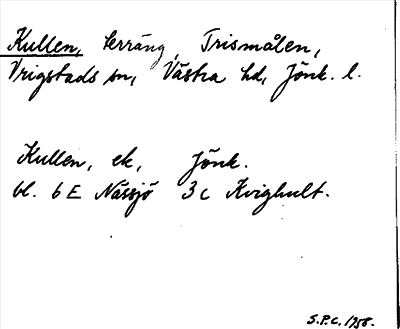 Kullen, terräng, Trismålen,
Vrigstads sn, Västra hd, Jönk. l.
Kullen, ek, Jönk.
bl. 6 E Nässjö 3 c Kvighult.
S.P.C. 1958.